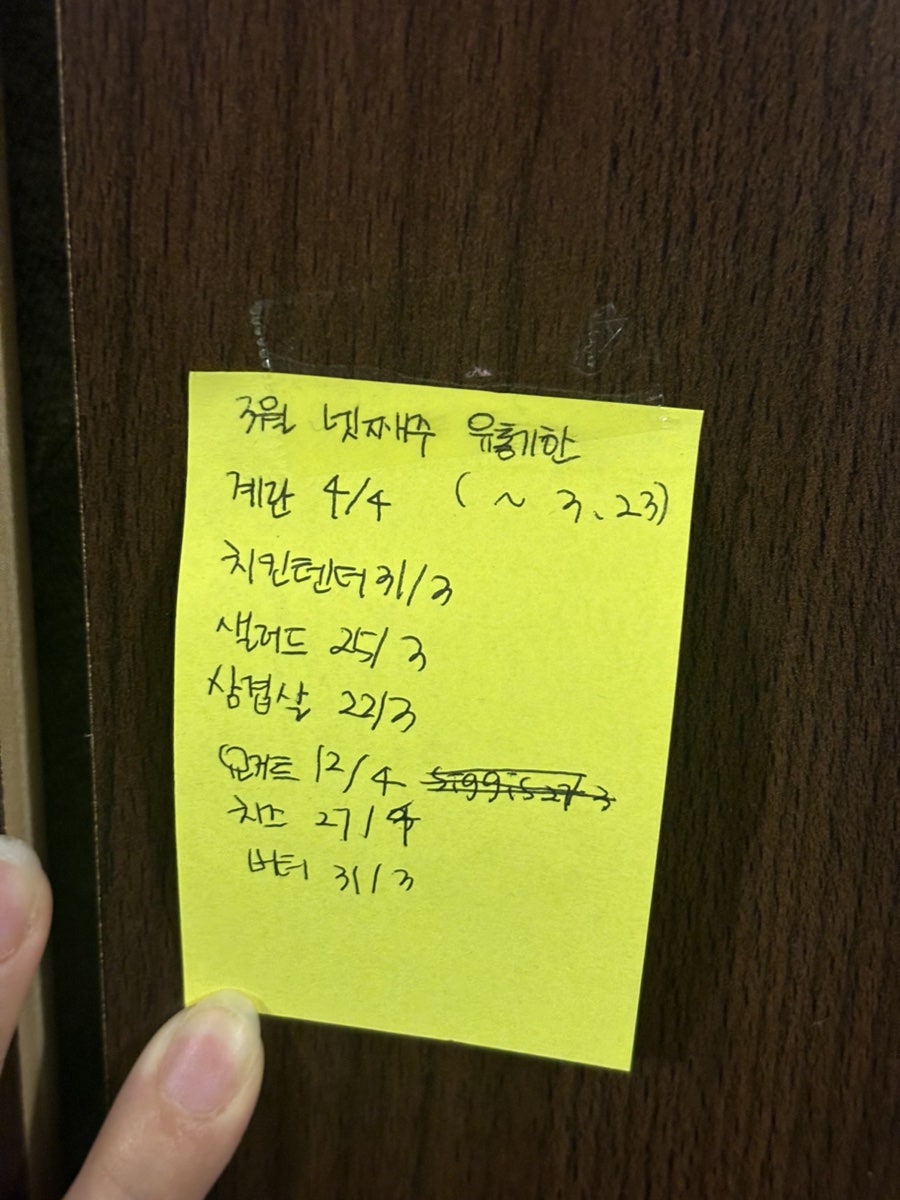 3월 넷째주 유통기한
계란 4/4 (~ 3.23)
치킨텐더 31/3
샐러드 25/3
삼겹살 22/3
요거트 12/4 siggis 27/3
치즈 27/4
버터 31/3